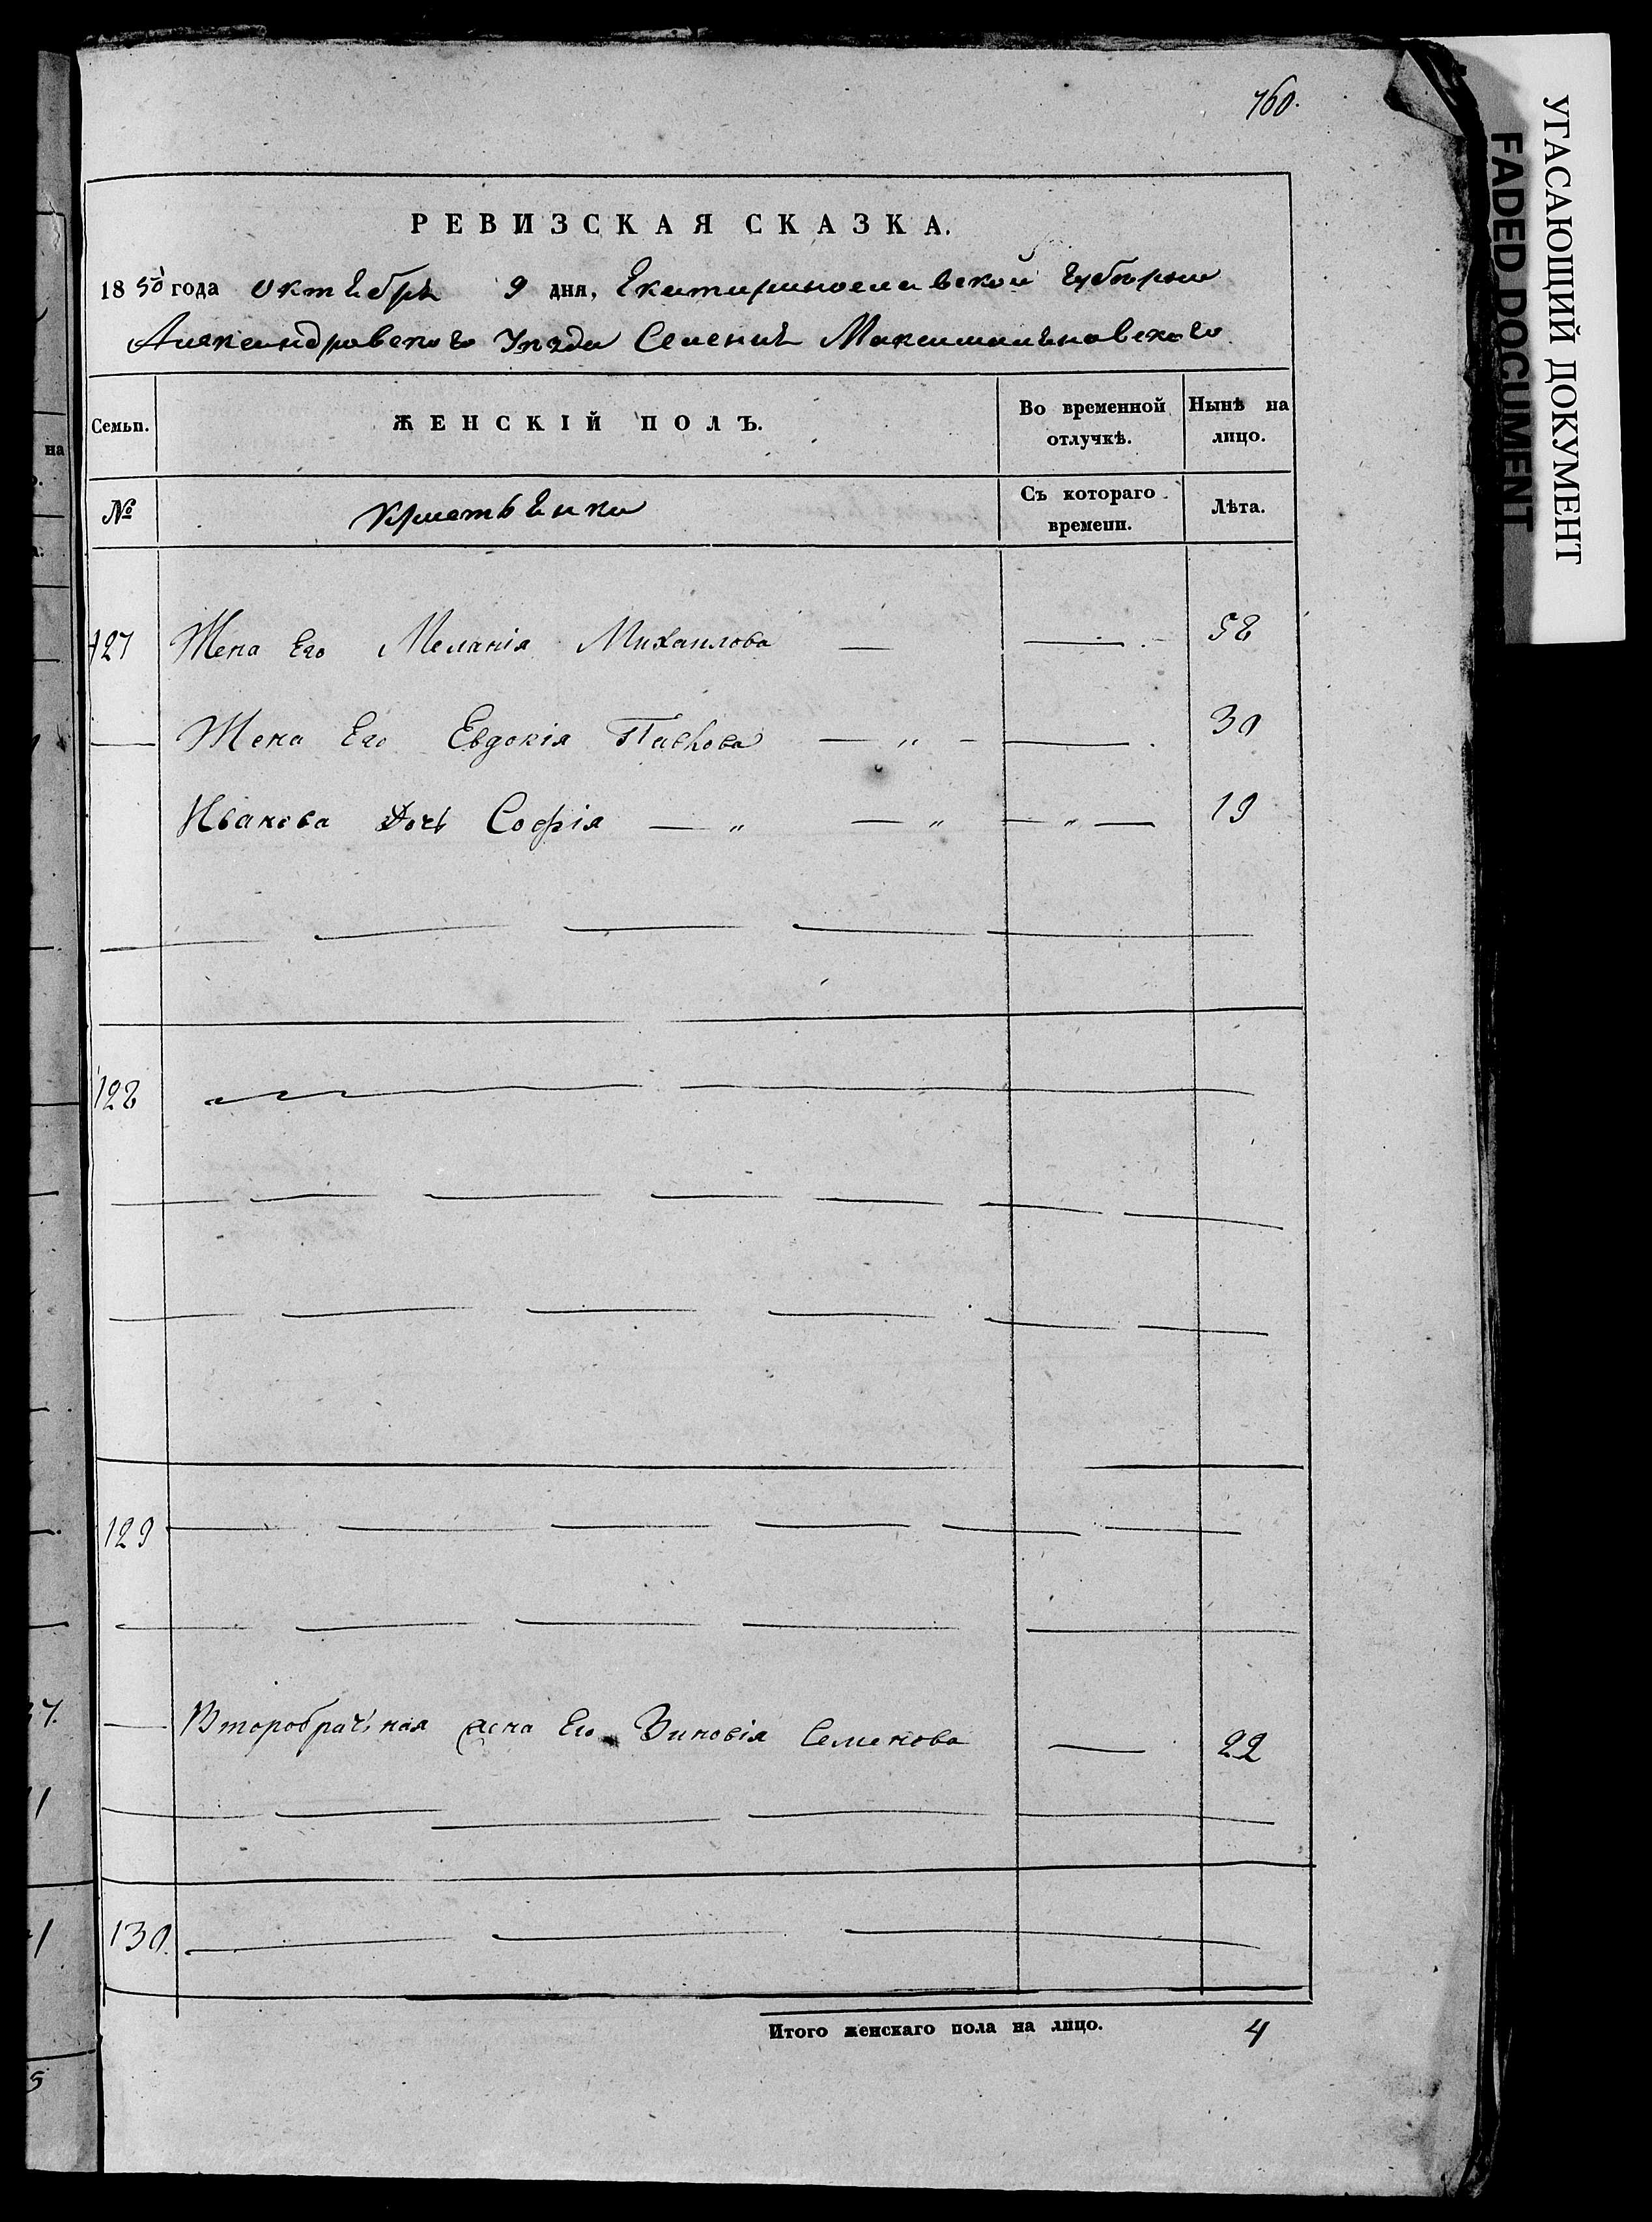 760.
РЕВИЗСКАЯ СКАЗКА.
1850 года Октября 9 дня, Екатеринославской Губернии
Александровского Уезда Селения Максимильяновского.
Семьи. ЖЕНСКІЙ ПОЛЪ. Во временной отлучкѣ. Нынѣ на лицо.
№ Крестьянки Съ котораго времени. Лѣта.
127 Жена Его Меланія Михаилова — — 58
— Жена Его Евдокія Павлова — „ — — 30
Иванова Дочь Софія — „ — „ — „ — 19
128
129
— Второбрачная жена Его Зиновія Семенова — 22
130.
Итого женскаго пола на лицо. 4
УГАСАЮЩИЙ ДОКУМЕНТ
FADED DOCUMENT